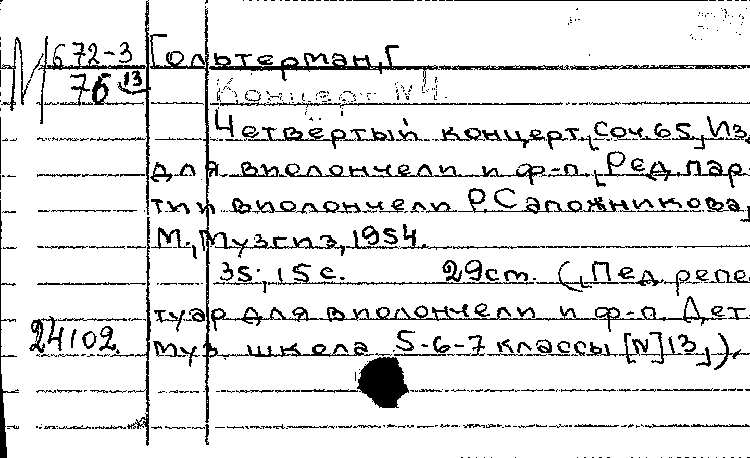 М 672-3 Гольтерман, Г
76 13 Концерт N4.
Четвёртый концерт, Соч. 65, Из.
для виолончели и ф-п., Ред. пар-
тии виолончели Р. Сапожникова,
М., Музгиз, 1954.
35; 15 с. 29 см. (Пед. репе
туар для виолончели и ф-п. Дет.
24102. муз. школа 5-6-7 классы [N] 13,).